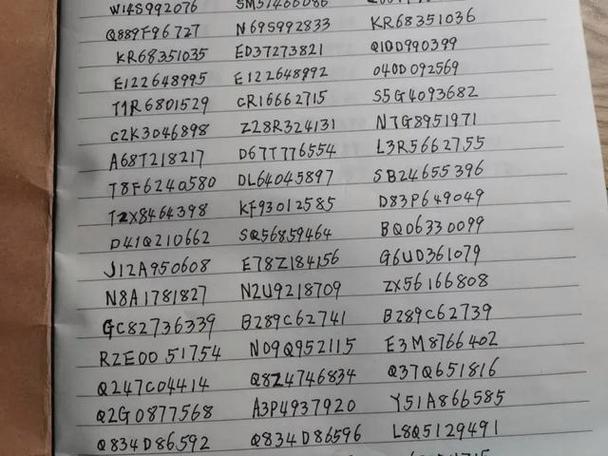 W14S992076 SM51466086
Q889F96727 N69S992833 KR68351036
KR68351035 ED37273821 Q10D990399
E122648995 E122648992 040D092569
T1R6801529 CR16662715 S5G4093682
C2K3046898 Z28R324131 N7G8951971
A68T218217 D67T776554 L3R5662755
T8F6240580 DL64045897 SB24655396
T2X8464398 KF93012585 D83P649049
D41Q210662 SQ56859464 BQ06330099
J12A950608 E78Z184156 G6UD361079
N8A1781827 N2U9218709 ZX56166808
GC82736339 B289C62741 B289C62739
R2E0051754 N09Q952115 E3M8766402
Q247C04414 Q8Z4746834 Q37Q651816
Q2G0877568 A3P4937920 Y51A866585
Q834D86592 Q834D86596 L8Q5129491